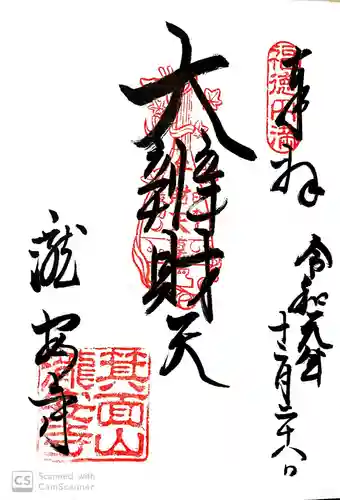 奉拝
令和元年
十二月二十八日
大辨財天
瀧安寺
福徳円満
箕面山
瀧安寺
CS Scanned with
CamScanner